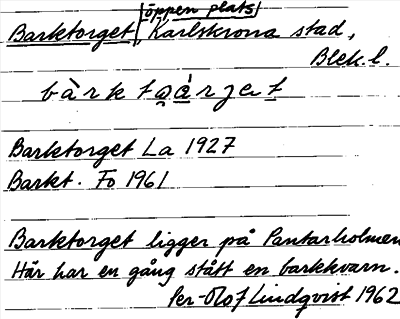 öppen plats
Barktorget, Karlskrona stad,
Blek. l.
bàrktɷárjet
Barktorget La 1927
Barkt. Fo 1961
Barktorget ligger på Pantarholmen
Här har en gång stått en barkkvarn.
Per-Olof Lindqvist 1962